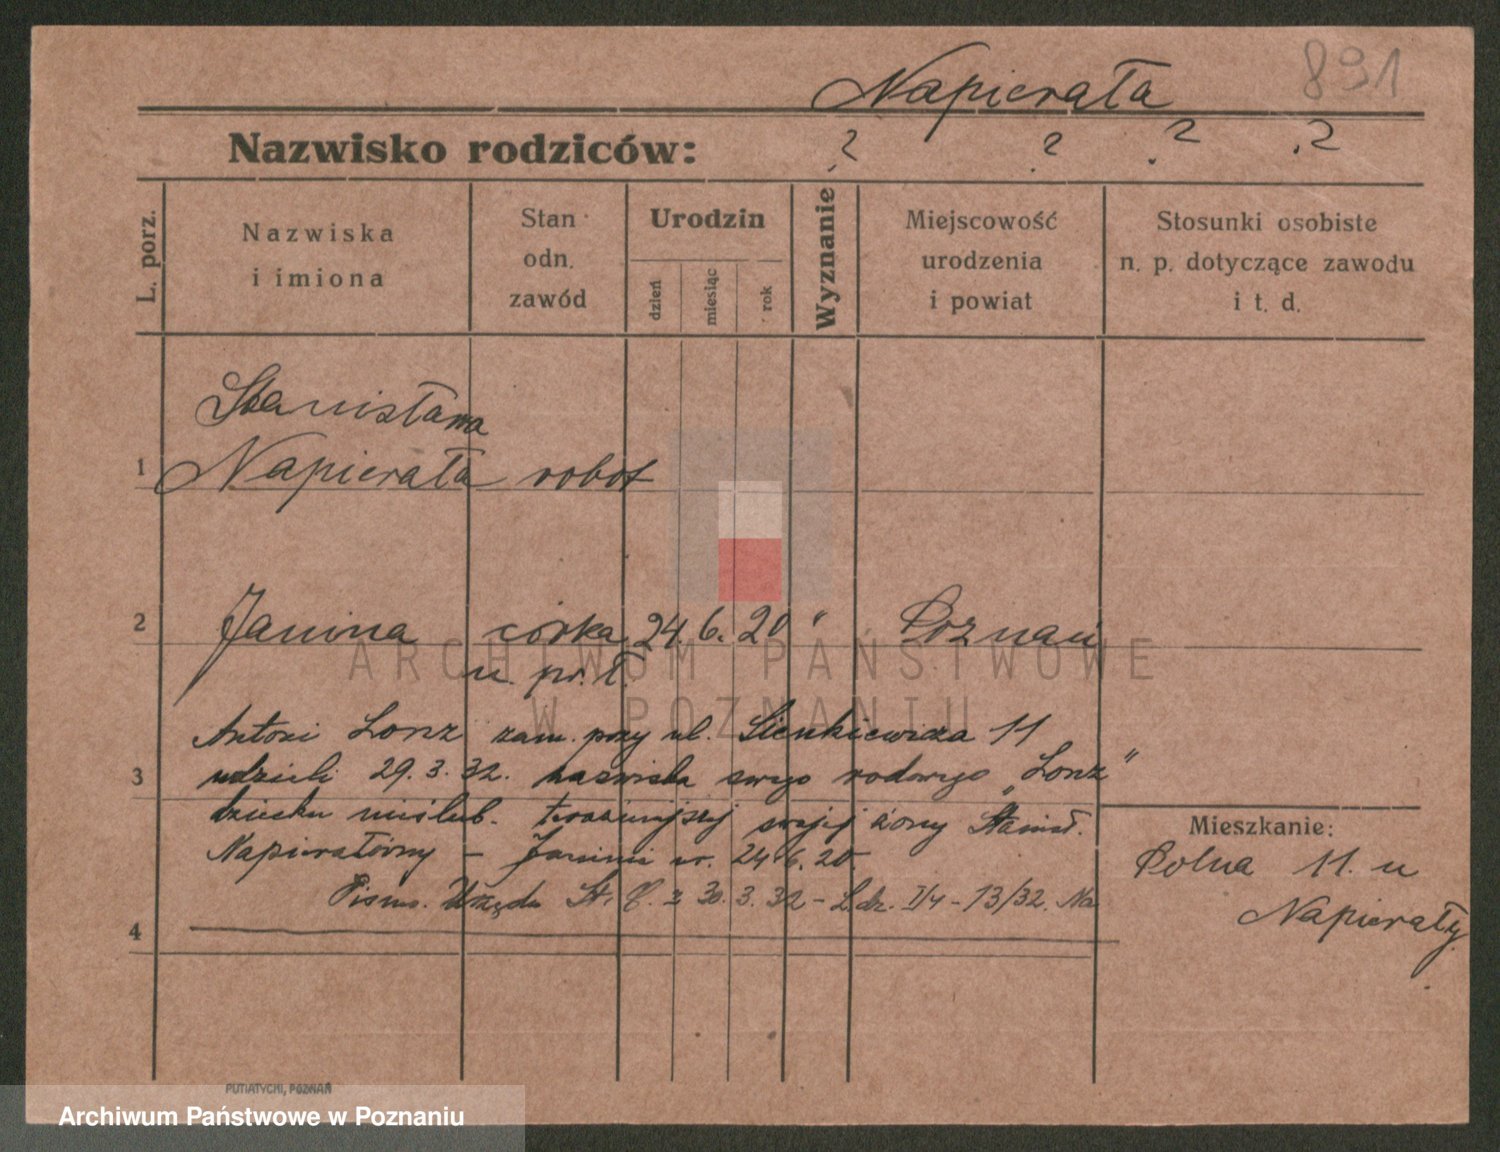 Napierała 891
Nazwisko rodziców: ? ? ? ?
L. porz.
Nazwiska
i imiona
Stan
odn.
zawód
Urodzin
dzień
miesiąc
rok
Wyznanie
Miejscowość
urodzenia
i powiat
Stosunki osobiste
n. p. dotyczące zawodu
i t. d.
Stanisława
1 Napierała robot
2 Janina córka 24. 6. 20 " Poznań
n. pr. ł.
Antoni Lonz zam. przy ul. Sienkiewicza 11
3 udzielił 29. 3. 32. nazwiska swego rodowego „Lonz”
dziecku nieślub. swojej żony Stanisł.
Napierałówny – Janinie ur. 24.6.20
Pismo. Urzędu St. C. z 30. 3. 32 – L. dz. I/4 – 13/32. Na
4
Mieszkanie:
Polna 11. u
Napierały
ARCHIWUM PAŃSTWOWE
W POZNANIU
PUTIATYCKI, POZNAŃ
Archiwum Państwowe w Poznaniu